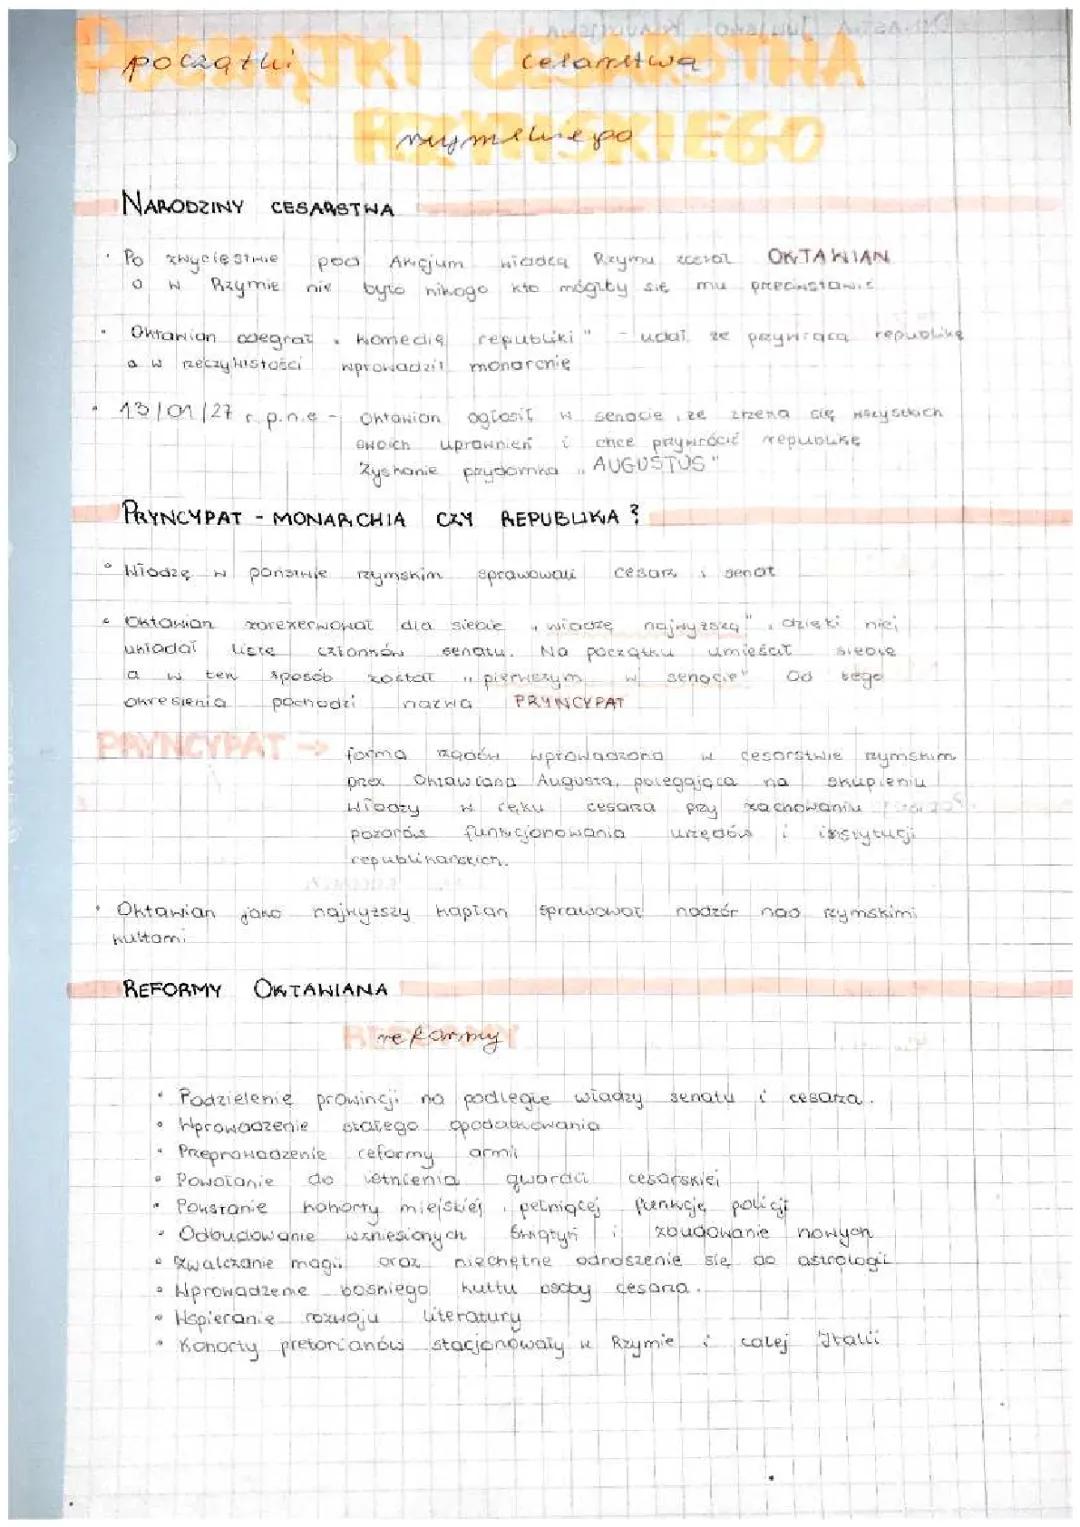 POCZĄTKI CESARSTWA
początki cesarstwa
RZYMSKIEGO
rzymskiego
NARODZINY CESARSTWA
• Po zwycięstwie pod Akcjum władcą Rzymu został OKTAWIAN
a w Rzymie nie było nikogo kto mógłby się mu przeciwstawić
• Oktawian odegrał „komedię republiki" - udał że przywraca republikę
a w rzeczywistości wprowadził monarchię
• 13/01/27 r.p.n.e - Oktawian ogłosił w senacie, że zrzeka się wszystkich
swoich uprawnień i chce przywrócić republikę
Zyskanie przydomka „AUGUSTUS"
PRYNCYPAT - MONARCHIA CZY REPUBLIKA?
• Władzę w państwie rzymskim sprawowali cesarz i senat
• Oktawian zarezerwował dla siebie „władzę najwyższą", dzięki niej
układał listę członków senatu. Na początku umieścił siebie
a w ten sposób został „pierwszym w senacie" Od tego
określenia pochodzi nazwa PRYNCYPAT
PRYNCYPAT → forma rządów wprowadzona w cesarstwie rzymskim
przez Oktawiana Augusta, polegająca na skupieniu
władzy w ręku cesarza przy zachowaniu
pozorów funkcjonowania urzędów i instytucji
republikańskich.
• Oktawian jako najwyższy kapłan sprawował nadzór nad rzymskimi
kultami
REFORMY OKTAWIANA
REFORMY
reformy
• Podzielenie prowincji na podległe władzy senatu i cesarza.
• Wprowadzenie stałego opodatkowania
• Przeprowadzenie reformy armii
• Powołanie do istnienia gwardii cesarskiej
• Powstanie kohorty miejskiej, pełniącej funkcję policji
• Odbudowanie wzniesionych świątyń i zbudowanie nowych
• Zwalczanie magii oraz niechętne odnoszenie się do astrologii
• Wprowadzenie boskiego kultu osoby cesarza.
• Wspieranie rozwoju literatury
• Kohorty pretorianów stacjonowały w Rzymie i całej Italii